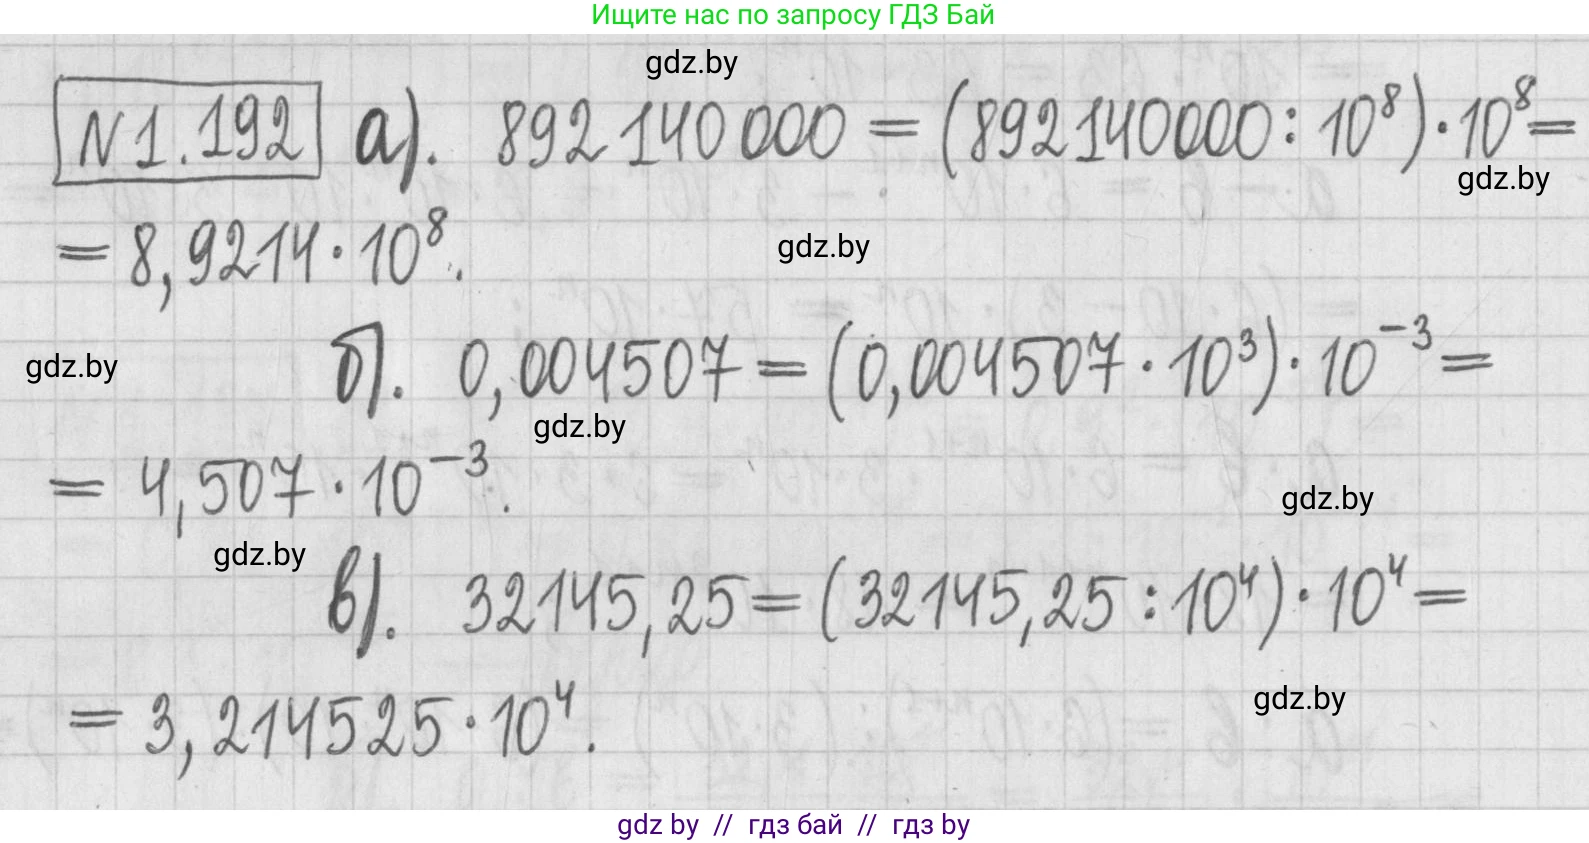 Ищите нас по запросу ГДЗ Бай
gdz.by
N1.192 а). 892 140 000 = (892140000 : 10⁸) · 10⁸ =
gdz.by
= 8,9214 · 10⁸.
gdz.by
б). 0,004507 = (0,004507 · 10³) · 10⁻³ =
gdz.by
gdz.by
= 4,507 · 10⁻³.
gdz.by
gdz.by
в). 32145,25 = (32145,25 : 10⁴) · 10⁴ =
= 3,214525 · 10⁴.
gdz.by
gdz by // гдз бай // гдз by